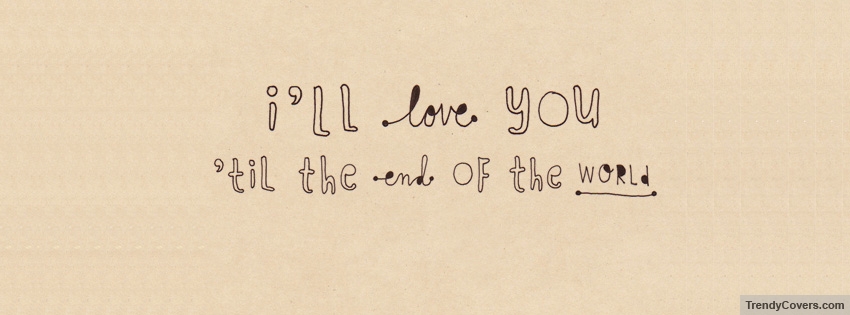 i'll love YOU
'til the end OF the WORLd
TrendyCovers.com